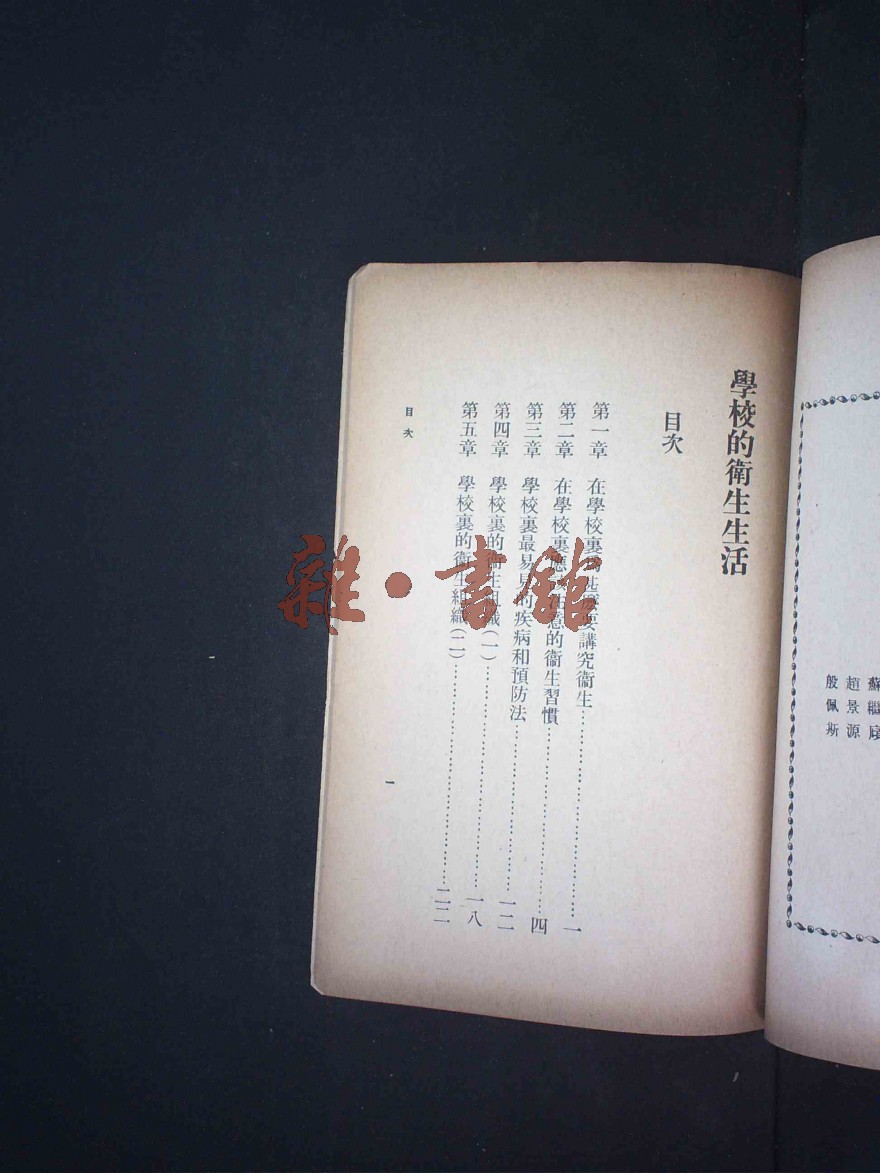 趙景源
殷佩斯
學校的衛生生活
目次
第一章　在學校裏爲甚麼要講究衛生……一
第二章　在學校裏應注意的衛生習慣……四
第三章　學校裏最易見的疾病和預防法……一二
第四章　學校裏的衛生組織(一)……一八
第五章　學校裏的衛生組織(二)……二二
目次
一
雜·書館